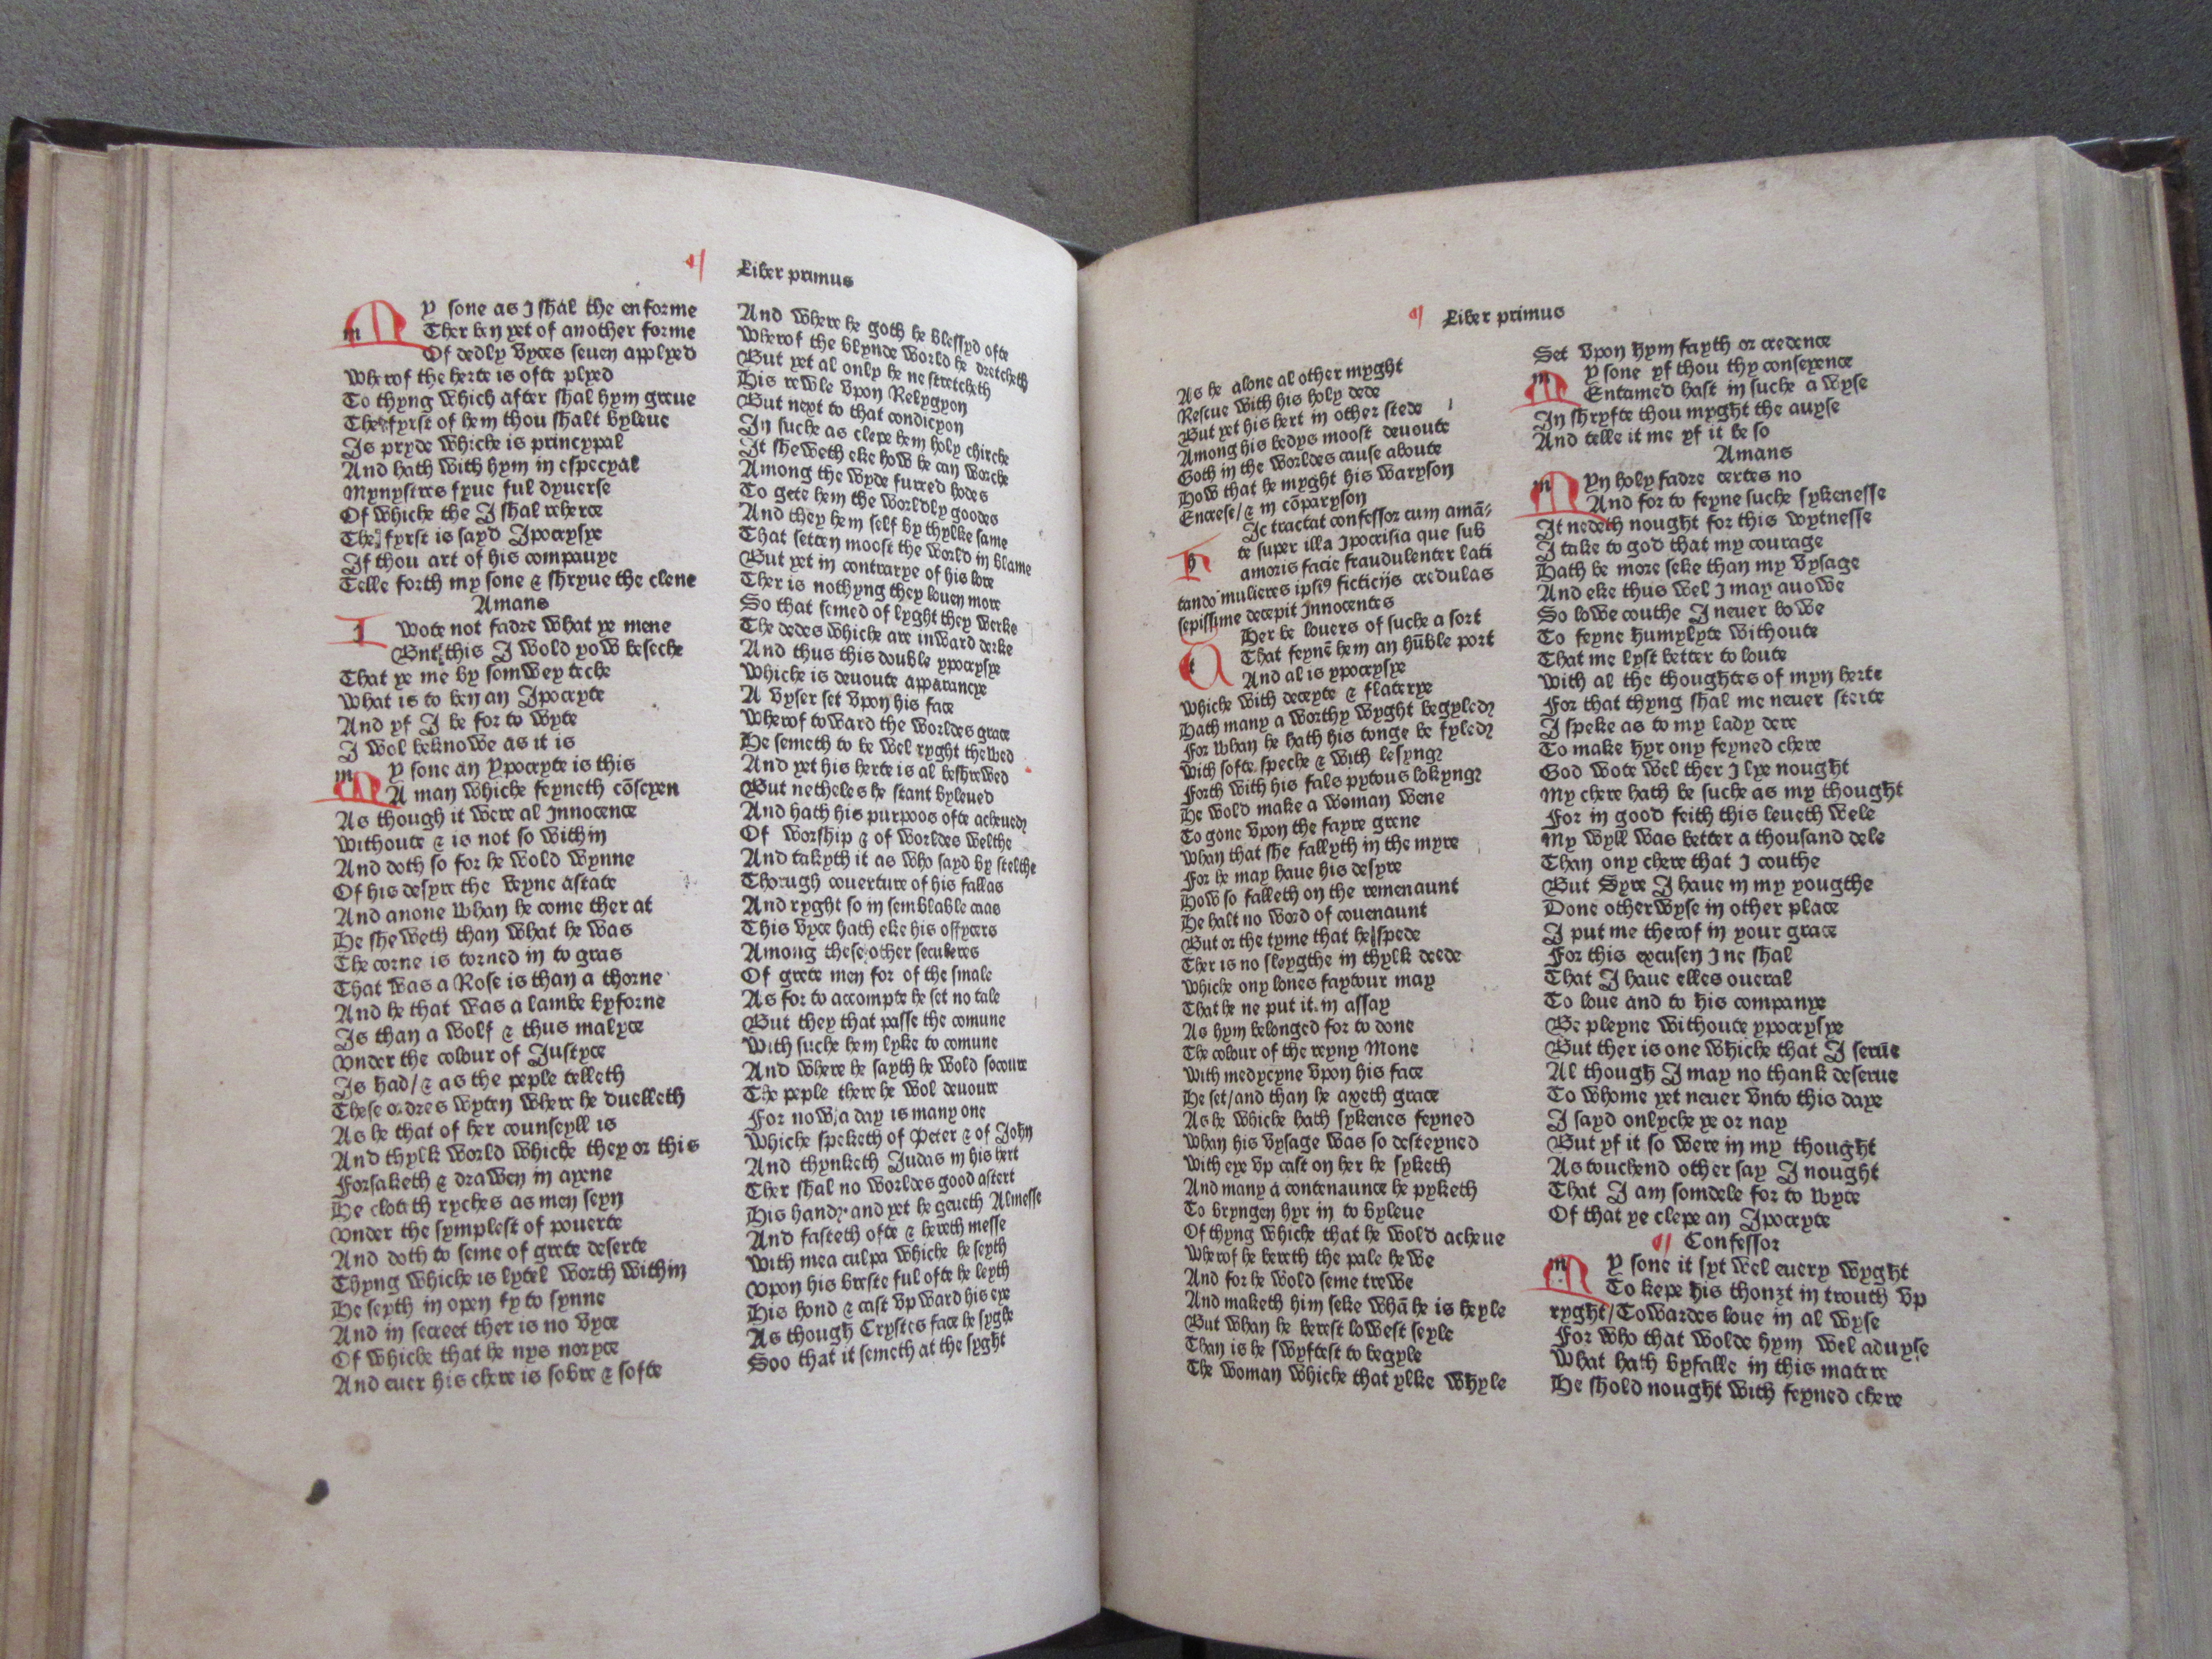 Liber primus
My sone as I shal the enforme
Ther ben yet of another forme
Of dedly vyces seuen applyed
Wherof the herte is ofte plyed
To thyng which after shal hym greue
The fyrst of hem thou shalt byleue
Is pryde whiche is pryncypal
And hath with hym in especyal
Mynystres fyue ful dyuerse
Of whiche the I shal reherce
The fyrst is sayd Ipocrysye
If thou art of his compauye
Telle forth my sone & shryue the clene
Amans
I wote not fadre what ye mene
But this I wold yow beseche
That ye me by somwey teche
What is to ben an Ipocryte
And yf I be for to wyte
I wol beknowe as it is
My sone an Ypocryte is this
A man whiche feyneth cōscyen
As though it were al Innocence
Withoute & is not so within
And doth so for he wold wynne
Of his desyre the veyne astate
And anone whan he come ther at
He sheweth than what he was
The corne is torned in to gras
That was a Rose is than a thorne
And he that was a lambe byforne
Is than a wolf & thus malyce
Vnder the colour of Justyce
Is had/& as the peple telleth
These ordres wyten where he duelleth
As he that of her counseyll is
And thylk world whiche they or this
Forsaketh & drawen in ayene
He cloteth ryches as men seyn
Vnder the symplest of pouerte
And doth to seme of grete deserte
Thyng whiche is lytel worth within
He seyth in open fy to synne
And in secreet ther is no vyce
Of whiche that he nys noryce
And euer his chere is sobre & softe
And where he goth he blessyd ofte
Wherof the blynde world he dretcheth
But yet al only he ne stretcheth
His rewle vpon Relygyon
But next to that condicyon
In suche as clepe hem holy chirche
It sheweth eke how he can worche
Among the wyde furred hodes
To gete hem the worldly goodes
And they hem self by thylke same
That setten moost the world in blame
But yet in contrarye of his lore
Ther is nothyng they louen more
So that semed of lyght they werke
The dedes whiche are inward derke
And thus this double ypocrysye
Whiche is deuoute apparancye
A vyser set vpon his face
Wherof toward the worldes grace
He semeth to be wel ryght thewed
And yet his herte is al beshrewed
But netheles he stant byleued
And hath his purpoos ofte acheued
Of worship & of worldes welthe
And takyth it as who sayd by stelthe
Thorugh couerture of his fallas
And ryght so in semblable caas
This vyce hath eke his offycers
Among these other seculeres
Of grete men for of the smale
As for to accompte he set no tale
But they that passe the comune
With suche hem lyke to comune
And where he sayth he wold socoure
The peple there he wol deuoure
For now a day is many one
Whiche speketh of Peter & of John
And thynketh Judas in his hert
Ther shal no worldes good astert
His hand and yet he geueth Almesse
And fasteth ofte & hereth messe
With mea culpa whiche he seyth
Vpon his breste ful ofte he leyth
His hond & cast vpward his eye
As though Crystes face he syghe
Soo that it semeth at the syght
Liber primus
As he alone al other myght
Rescue with his holy dede
But yet his hert in other stede
Among his bedys moost deuoute
Goth in the worldes cause aboute
How that he myght his waryson
Encrese/& in cōparyson
hIc tractat confessor cum amā-
te super illa Ipocrisia que sub
amoris facie fraudulenter lati
tando mulieres ipsiꝰ ficticijs credulas
sepissime decepit Innocentes
tHer be louers of suche a sort
That feynē hem an hūble port
And al is ypocrysye
Whiche with deceyte & flaterye
Hath many a worthy wyght begyled
For whan he hath his tonge be fyled
With softe speche & with lesyng
Forth with his fals pytous lokyng
He wold make a woman wene
To gone vpon the fayre grene
Whan that she fallyth in the myre
For he may haue his desyre
How so falleth on the remenaunt
He halt no word of couenaunt
But or the tyme that he spede
Ther is no sleygthe in thylk deede
Whiche ony loues faytour may
That he ne put it in assay
As hym belonged for to done
The colour of the reyny Mone
With medycyne vpon his face
He set/and than he axeth grace
As he whiche hath sykenes feyned
Whan his vysage was so desteyned
With eye vp cast on her he syketh
And many a contenaunce he pyketh
To bryngen hyr in to byleue
Of thyng whiche that he wold acheue
Wherof he bereth the pale hewe
And for he wold seme trewe
And maketh him seke whā he is heyle
But whan he berest lowest seyle
Than is he swyftest to begyle
The woman whiche that ylke whyle
Set vpon hym fayth or credence
My sone yf thou thy conseyence
Entamed hast in suche a wyse
In shryfte thou myght the auyse
And telle it me yf it be so
Amans
Myn holy fadre certes no
And for to feyne suche sykenesse
It nedeth nought for this wytnesse
I take to god that my courage
Hath be more seke than my vysage
And eke thus wel I may auowe
So lowe couthe I neuer bowe
To feyne humylyte withoute
That me lyst better to loute
With al the thoughtes of myn herte
For that thyng shal me neuer sterte
I speke as to my lady dere
To make hyr ony feyned chere
God wote wel ther I lye nought
My chere hath be suche as my thought
For in good feith this leueth wele
My wyll was better a thousand dele
Than ony chere that I couthe
But Syre I haue in my yougthe
Done otherwyse in other place
I put me therof in your grace
For this excusen I ne shal
That I haue elles oueral
To loue and to his companye
Be pleyne withoute ypocrysye
But ther is one whiche that I serue
Al though I may no thank deserue
To whome yet neuer vnto this daye
I sayd onlyche ye or nay
But yf it so were in my thought
As touchend other say I nought
That I am somdele for to wyte
Of that ye clepe an Ipocryte
Confessor
My sone it syt wel euery wyght
To kepe his thonzt in trouth vp
ryght/Towardes loue in al wyse
For who that wolde hym wel aduyse
What hath byfalle in this matere
He shold nought with feyned chere